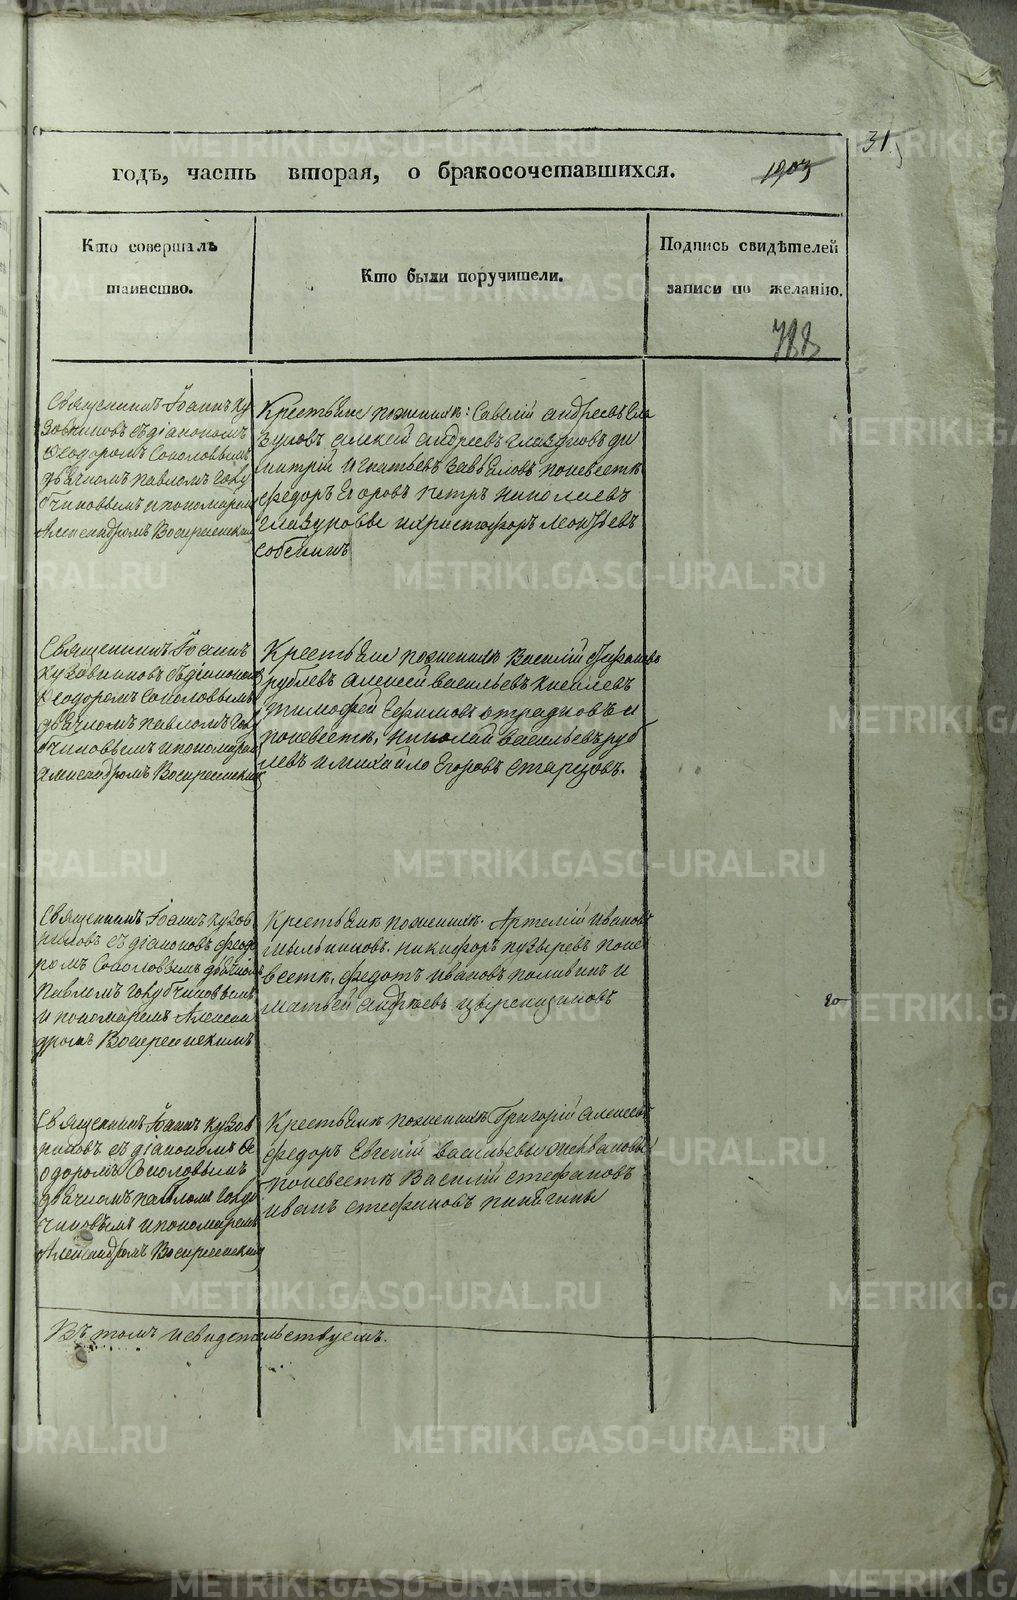 315
годъ, часть вторая, о бракосочетавшихся.
1903
Кто совершалъ
таинство.
Кто были поручители.
Подпись свидѣтелей
записи по желанію.
788
Священникъ Іоаннъ Ку
зовниковъ съ діакономъ
Ѳеодоромъ Соколовымъ
дьячкомъ Павломъ Голу
бчиковымъ и пономаремъ
Александромъ Воскресенским
Крестьяне по женихѣ: Савелій Андреевъ
Алексей Андреевъ Ди
митрій Игнатьевъ Завьяловъ по невестѣ
Федоръ Егоровъ Петръ Николаевъ
и Христофоръ Леонтьевъ
Собенинъ
Священникъ Іоаннъ
Кузовниковъ съ діакономъ
Ѳеодоромъ Соколовымъ
дьячкомъ Павломъ Голу
бчиковымъ и пономаремъ
Александромъ Воскресенским
Крестьяне по женихѣ Василій
Рублевъ Алексей Васильевъ Киселевъ
Тимофей Ефимовъ Отрадновъ и
по невестѣ, Николай Васильевъ Руб
левъ и Михайло Егоровъ Старцовъ.
Священникъ Іоаннъ Кузов
никовъ съ діакономъ Феодо
ромъ Соколовымъ дьячкомъ
Павломъ Голубчиковымъ
и пономаремъ Алексан
дромъ Воскресенскимъ
Крестьяне по женихѣ. Артемій Ивановъ
Мыльниковъ. Никифоръ Пузыревъ по не
вестѣ, Федотъ Ивановъ Поливинъ и
Матвей Андреевъ
20
Священникъ Іоаннъ Кузов
никовъ съ діакономъ Ѳе
одоромъ Соколовымъ
дьячкомъ Павломъ Голуб
чиковымъ и пономаремъ
Александромъ Воскресенским
Крестьяне по женихѣ Григорій Алексеевъ
Федоръ Евгеній Васильевы
по невестѣ Василій Стефановъ
Иванъ Стефановъ Пинигины
Въ томъ и свидетельствуемъ.
METRIKI.GASO-URAL.RU